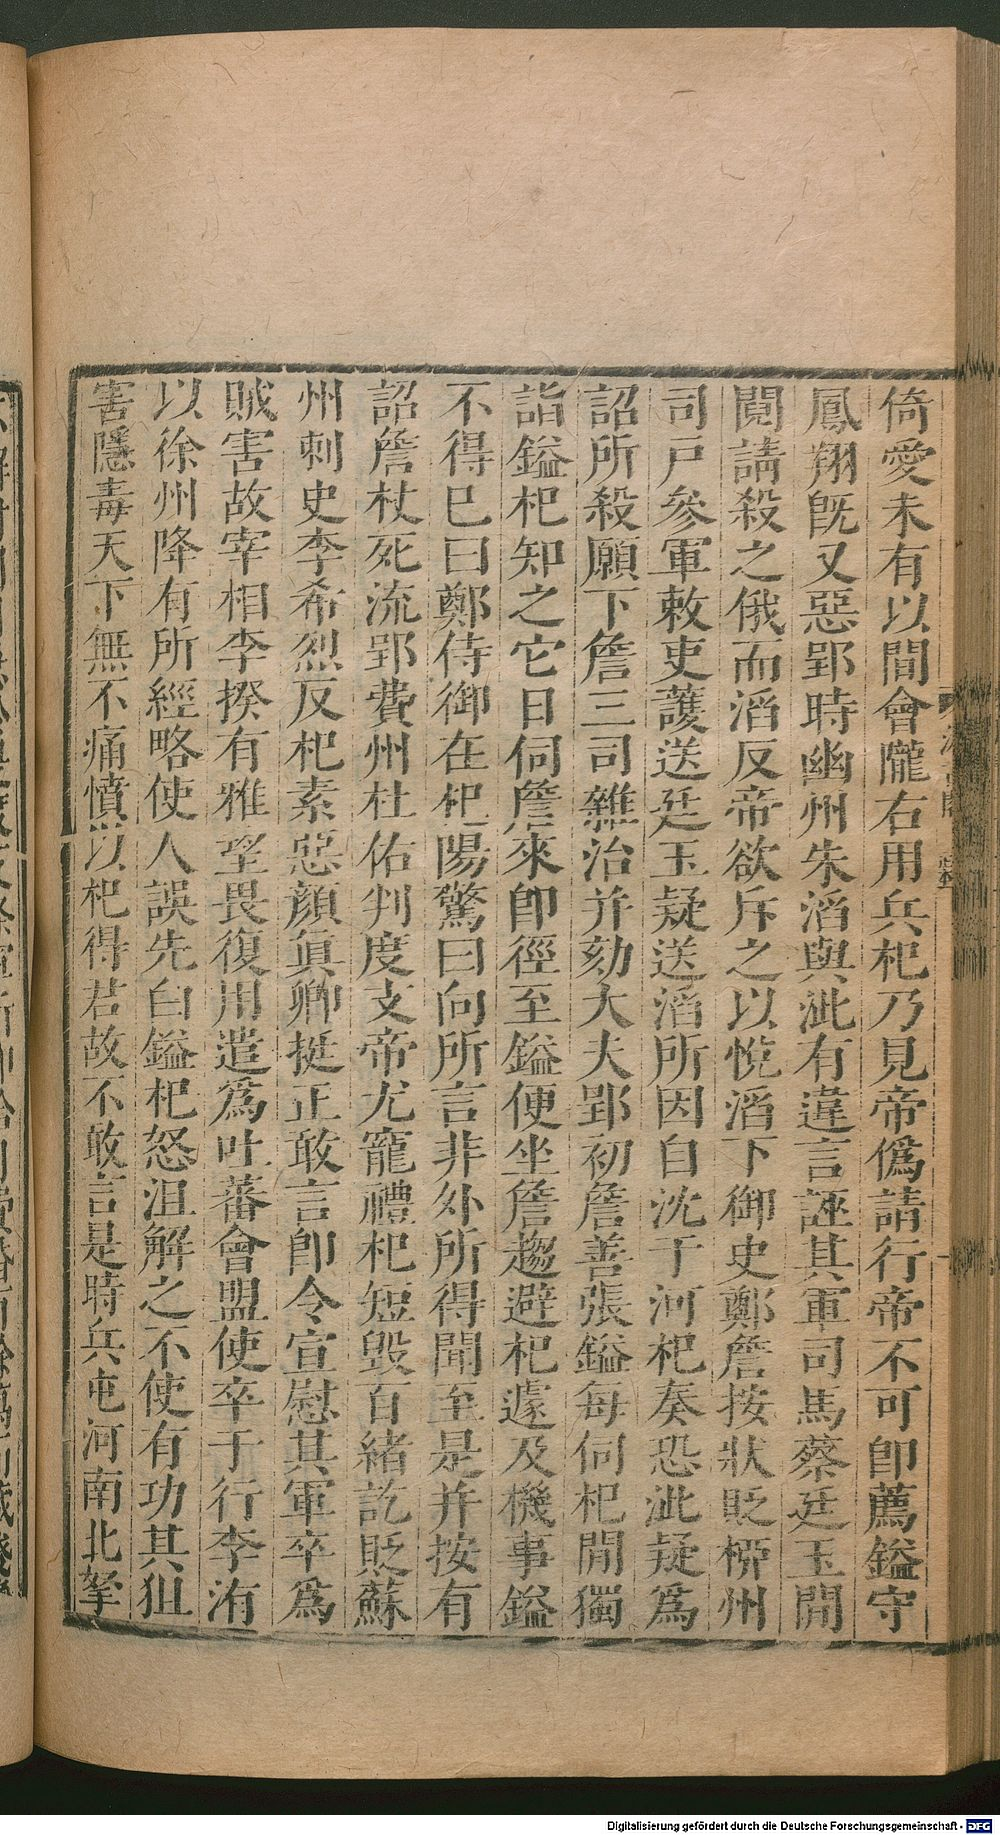 倚愛未有以間會隴右用兵杞乃見帝僞請行帝不可卽薦鎰守
鳳翔旣又惡郢時幽州朱滔與泚有違言誣其軍司馬蔡廷玉閒
閱請殺之俄而滔反帝欲斥之以悅滔下御史鄭詹按狀貶柳州
司戸參軍敕吏護送廷玉疑送滔所因自沈于河杞奏恐泚疑爲
詔所殺願下詹三司雜治并劾大夫郢初詹善張鎰每伺杞閒獨
詣鎰杞知之它日伺詹來卽徑至鎰便坐詹趨避杞遽及機事鎰
不得巳曰鄭侍御在杞陽驚曰向所言非外所得聞至是并按有
詔詹杖死流郢費州杜佑判度支帝尤寵禮杞短毀百緒訖貶蘇
州刺史李希烈反杞素惡顏眞卿挺正敢言卽令宣慰其軍卒爲
賊害故宰相李揆有雅望畏復用遣爲吐蕃會盟使卒于行李洧
以徐州降有所經略使人誤先白鎰杞怒沮解之不使有功其狙
害隱毒天下無不痛憤以杞得君故不敢言是時兵屯河南北挐
Digitalisierung gefördert durch die Deutsche Forschungsgemeinschaft - DFG